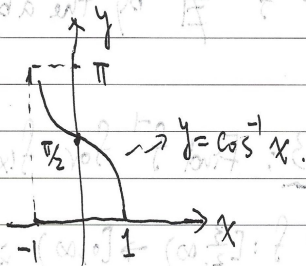 y
π
π/2
y = cos⁻¹ x.
x
-1
1